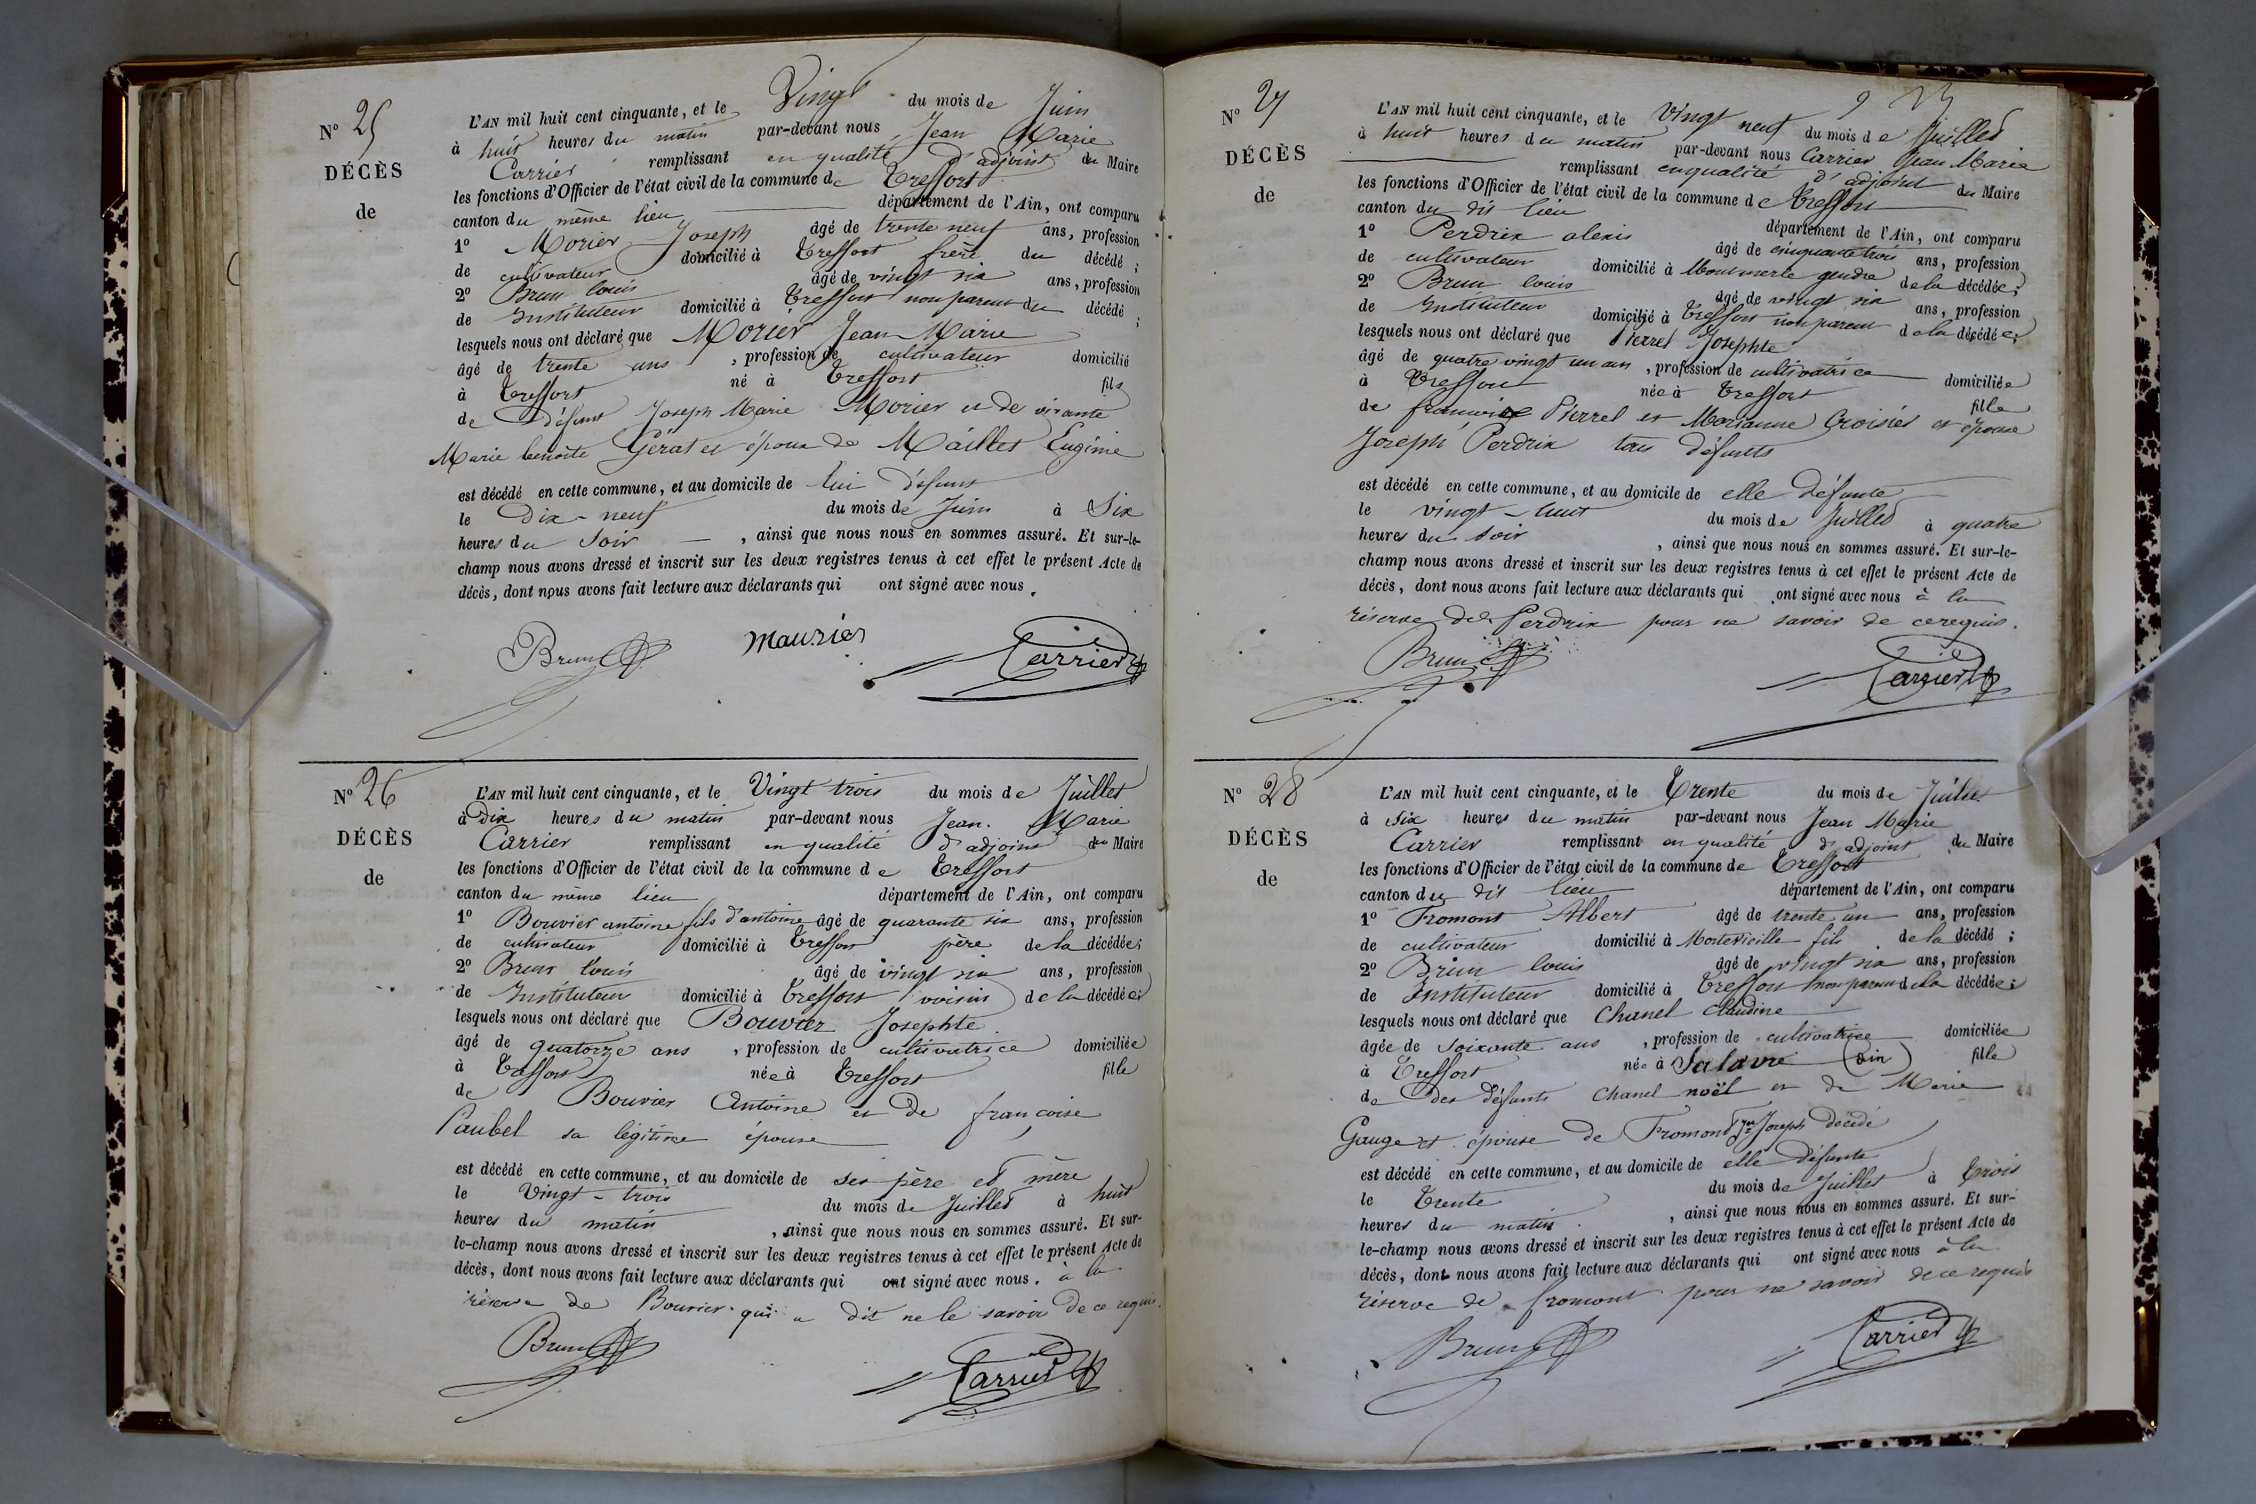 N° 25
DÉCÈS
de
L'AN mil huit cent cinquante, et le Vingt du mois de Juin
à huit heures du matin par-devant nous Jean Marie
Carrier remplissant en qualité d'adjoint du Maire
les fonctions d'Officier de l'état civil de la commune de Treffort
canton du même lieu département de l'Ain, ont comparu
1° Morier Joseph âgé de trente neuf ans, profession
de cultivateur domicilié à Treffort frère du décédé ;
2° Brun louis âgé de vingt six ans, profession
de Instituteur domicilié à Treffort non parent du décédé ;
lesquels nous ont déclaré que Morier Jean Marie
âgé de trente ans , profession de cultivateur domicilié
à Treffort né à Treffort fils
de Défunt Joseph Marie Morier et de vivante
Marie benoite Gérat et époux de Maillet Eugénie
est décédé en cette commune, et au domicile de lui défunt
le Dix-neuf du mois de Juin à Six
heures du Soir , ainsi que nous nous en sommes assuré. Et sur-le-
champ nous avons dressé et inscrit sur les deux registres tenus à cet effet le présent Acte de
décès, dont nous avons fait lecture aux déclarants qui ont signé avec nous.
Brun Maurier Carrier
N° 26
DÉCÈS
de
L'AN mil huit cent cinquante, et le Vingt trois du mois de Juillet
à Dix heures du matin par-devant nous Jean Marie
Carrier remplissant en qualité d'adjoint du Maire
les fonctions d'Officier de l'état civil de la commune de Treffort
canton du même lieu département de l'Ain, ont comparu
1° Bouvier antoine fils d'antoine âgé de quarante six ans, profession
de cultivateur domicilié à Treffort père de la décédée ;
2° Brun louis âgé de vingt six ans, profession
de Instituteur domicilié à Treffort voisin de la décédée ;
lesquels nous ont déclaré que Bouvier Josephte
âgé de quatorze ans , profession de cultivatrice domiciliée
à Treffort née à Treffort fille
de Bouvier Antoine et de françoise
Paubel sa légitime épouse
est décédé en cette commune, et au domicile de ses père et mère
le Vingt-trois du mois de Juillet à huit
heures du matin , ainsi que nous nous en sommes assuré. Et sur-
le-champ nous avons dressé et inscrit sur les deux registres tenus à cet effet le présent Acte de
décès, dont nous avons fait lecture aux déclarants qui ont signé avec nous. à la
réserve de Bouvier qui a dit ne le savoir de ce requis.
Brun Carrier
N° 27
DÉCÈS
de
L'AN mil huit cent cinquante, et le Vingt neuf du mois de Juillet
à huit heures du matin par-devant nous Carrier Jean Marie
remplissant en qualité d'adjoint du Maire
les fonctions d'Officier de l'état civil de la commune de Treffort
canton du dit lieu département de l'Ain, ont comparu
1° Perdrix alexis âgé de cinquante trois ans, profession
de cultivateur domicilié à Montmerle gendre de la décédée ;
2° Brun louis âgé de vingt six ans, profession
de Instituteur domicilié à Treffort non parent de la décédée
lesquels nous ont déclaré que Pierrel Josephte
âgé de quatre vingt un ans , profession de cultivatrice domiciliée
à Treffort née à Treffort fille
de françoise Pierrel et Marianne Croisiés et épouse
Joseph Perdrix tous défunts
est décédé en cette commune, et au domicile de elle défunte
le vingt-huit du mois de Juillet à quatre
heures du soir , ainsi que nous nous en sommes assuré. Et sur-le-
champ nous avons dressé et inscrit sur les deux registres tenus à cet effet le présent Acte de
décès, dont nous avons fait lecture aux déclarants qui ont signé avec nous à la
réserve de Perdrix pour ne savoir de ce requis.
Brun Carrier
N° 28
DÉCÈS
de
L'AN mil huit cent cinquante, et le Trente du mois de Juillet
à six heures du matin par-devant nous Jean Marie
Carrier remplissant en qualité d'adjoint du Maire
les fonctions d'Officier de l'état civil de la commune de Treffort
canton du dit lieu département de l'Ain, ont comparu
1° Fromont Albert âgé de trente un ans, profession
de cultivateur domicilié à Mortevieille fils de la décédé ;
2° Brun louis âgé de vingt six ans, profession
de Instituteur domicilié à Treffort non parent de la décédée ;
lesquels nous ont déclaré que Chanel Claudine
âgée de soixante ans , profession de cultivatrice domiciliée
à Treffort née à Salavre (ain) fille
de des défunts Chanel noël et de Marie
Gauge et épouse de Fromont Joseph décédé
est décédé en cette commune, et au domicile de elle défunte
le Trente du mois de Juillet à Trois
heures du matin , ainsi que nous nous en sommes assuré. Et sur-
le-champ nous avons dressé et inscrit sur les deux registres tenus à cet effet le présent Acte de
décès, dont nous avons fait lecture aux déclarants qui ont signé avec nous à la
réserve de fromont pour ne savoir de ce requis
Brun Carrier